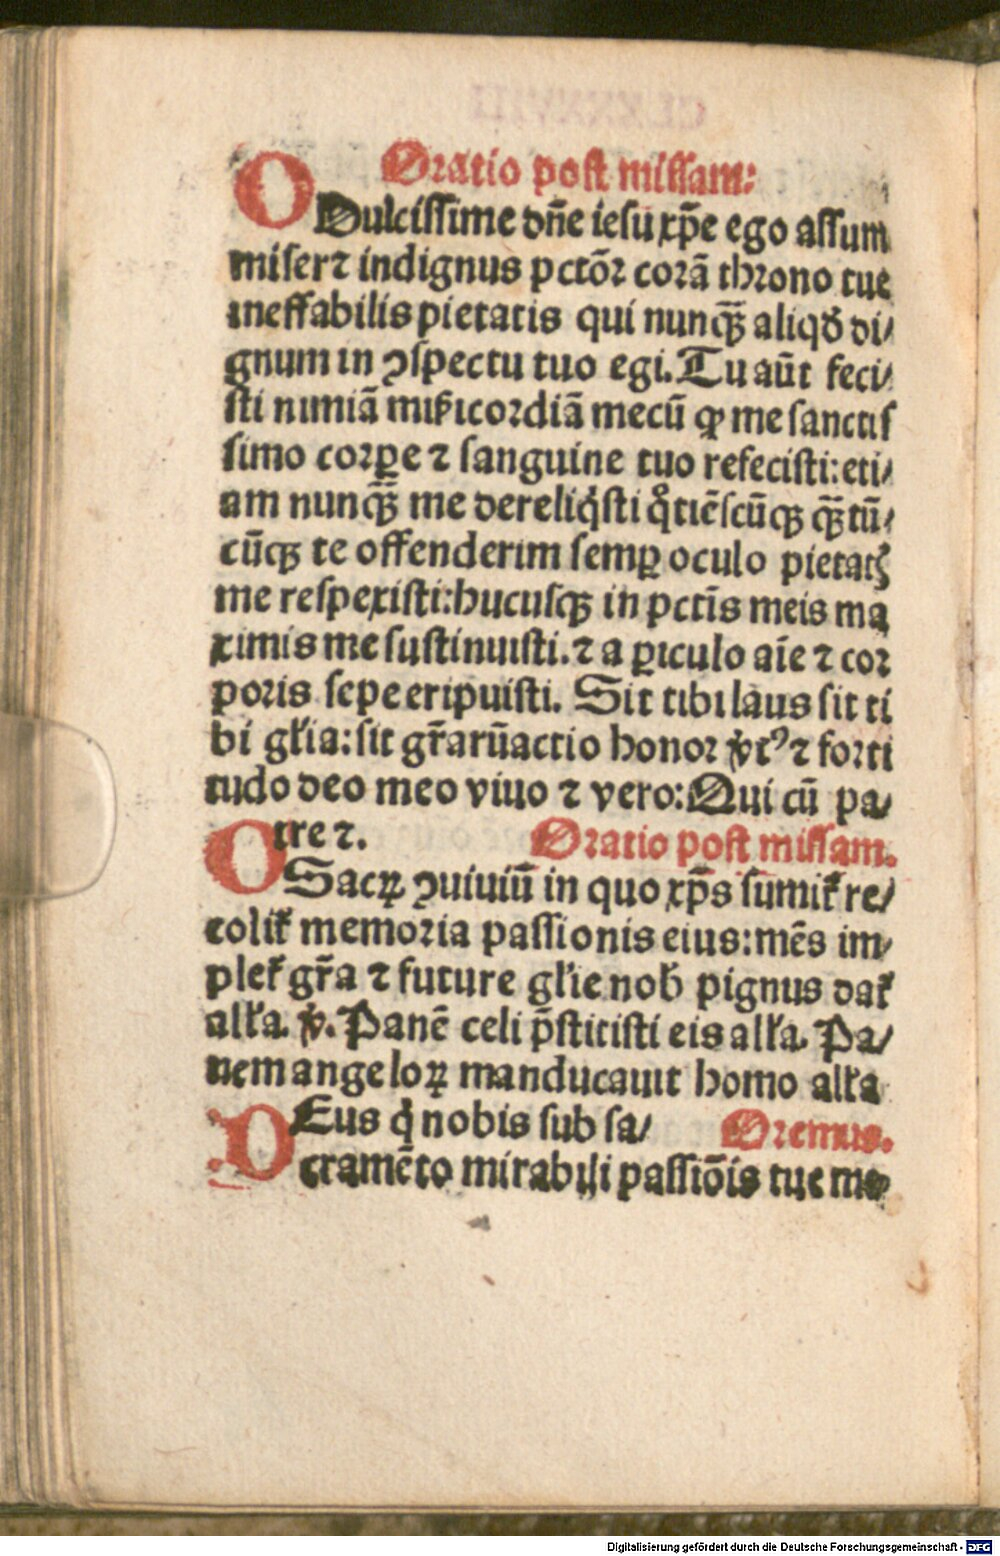 Oratio post missam:
O Dulcissime dñe iesu xp̄e ego assum
miser ⁊ indignus pctōr corā throno tue
ineffabilis pietatis qui nunqꝫ̄ aliqđ di/
gnum in ꝯspectu tuo egi. Tu aūt feci/
sti nimiā mīẜicordiā mecū ꝙ me sanctis
simo corꝑe ⁊ sanguine tuo refecisti: eti/
am nunqꝫ̄ me dereliq̇sti qͦtiēscūqꝫ qꝫ̄tū/
cūqꝫ te offenderim semꝑ oculo pietatꝭ
me respexisti: hucusqꝫ in pctīs meis ma
ximis me sustinuisti. ⁊ a ꝑiculo aīe ⁊ cor
poris sepe eripuisti. Sit tibi laus sit ti
bi gl̄ia: sit gr̄arū actio honor v̓tꝰ ⁊ forti
tudo deo meo viuo ⁊ vero: Qui cū pa/
tre ⁊.
Oratio post missam.
O Sacrꝝ ꝯuiuiū in quo xp̄s sumit̄ re/
colit̄ memoria passionis eius: mēs im/
plet̄ gr̄a ⁊ future gl̄ie nob̄ pignus dat̄
all̄a. ℣. Panē celi p̄stitisti eis all̄a. Pa/
nem angeloꝝ manducauit homo all̄a
Oremus.
DEus q̇ nobis sub sa/
cramēto mirabili passiōis tue me
CLXXXVIII
Digitalisierung gefördert durch die Deutsche Forschungsgemeinschaft - DFG